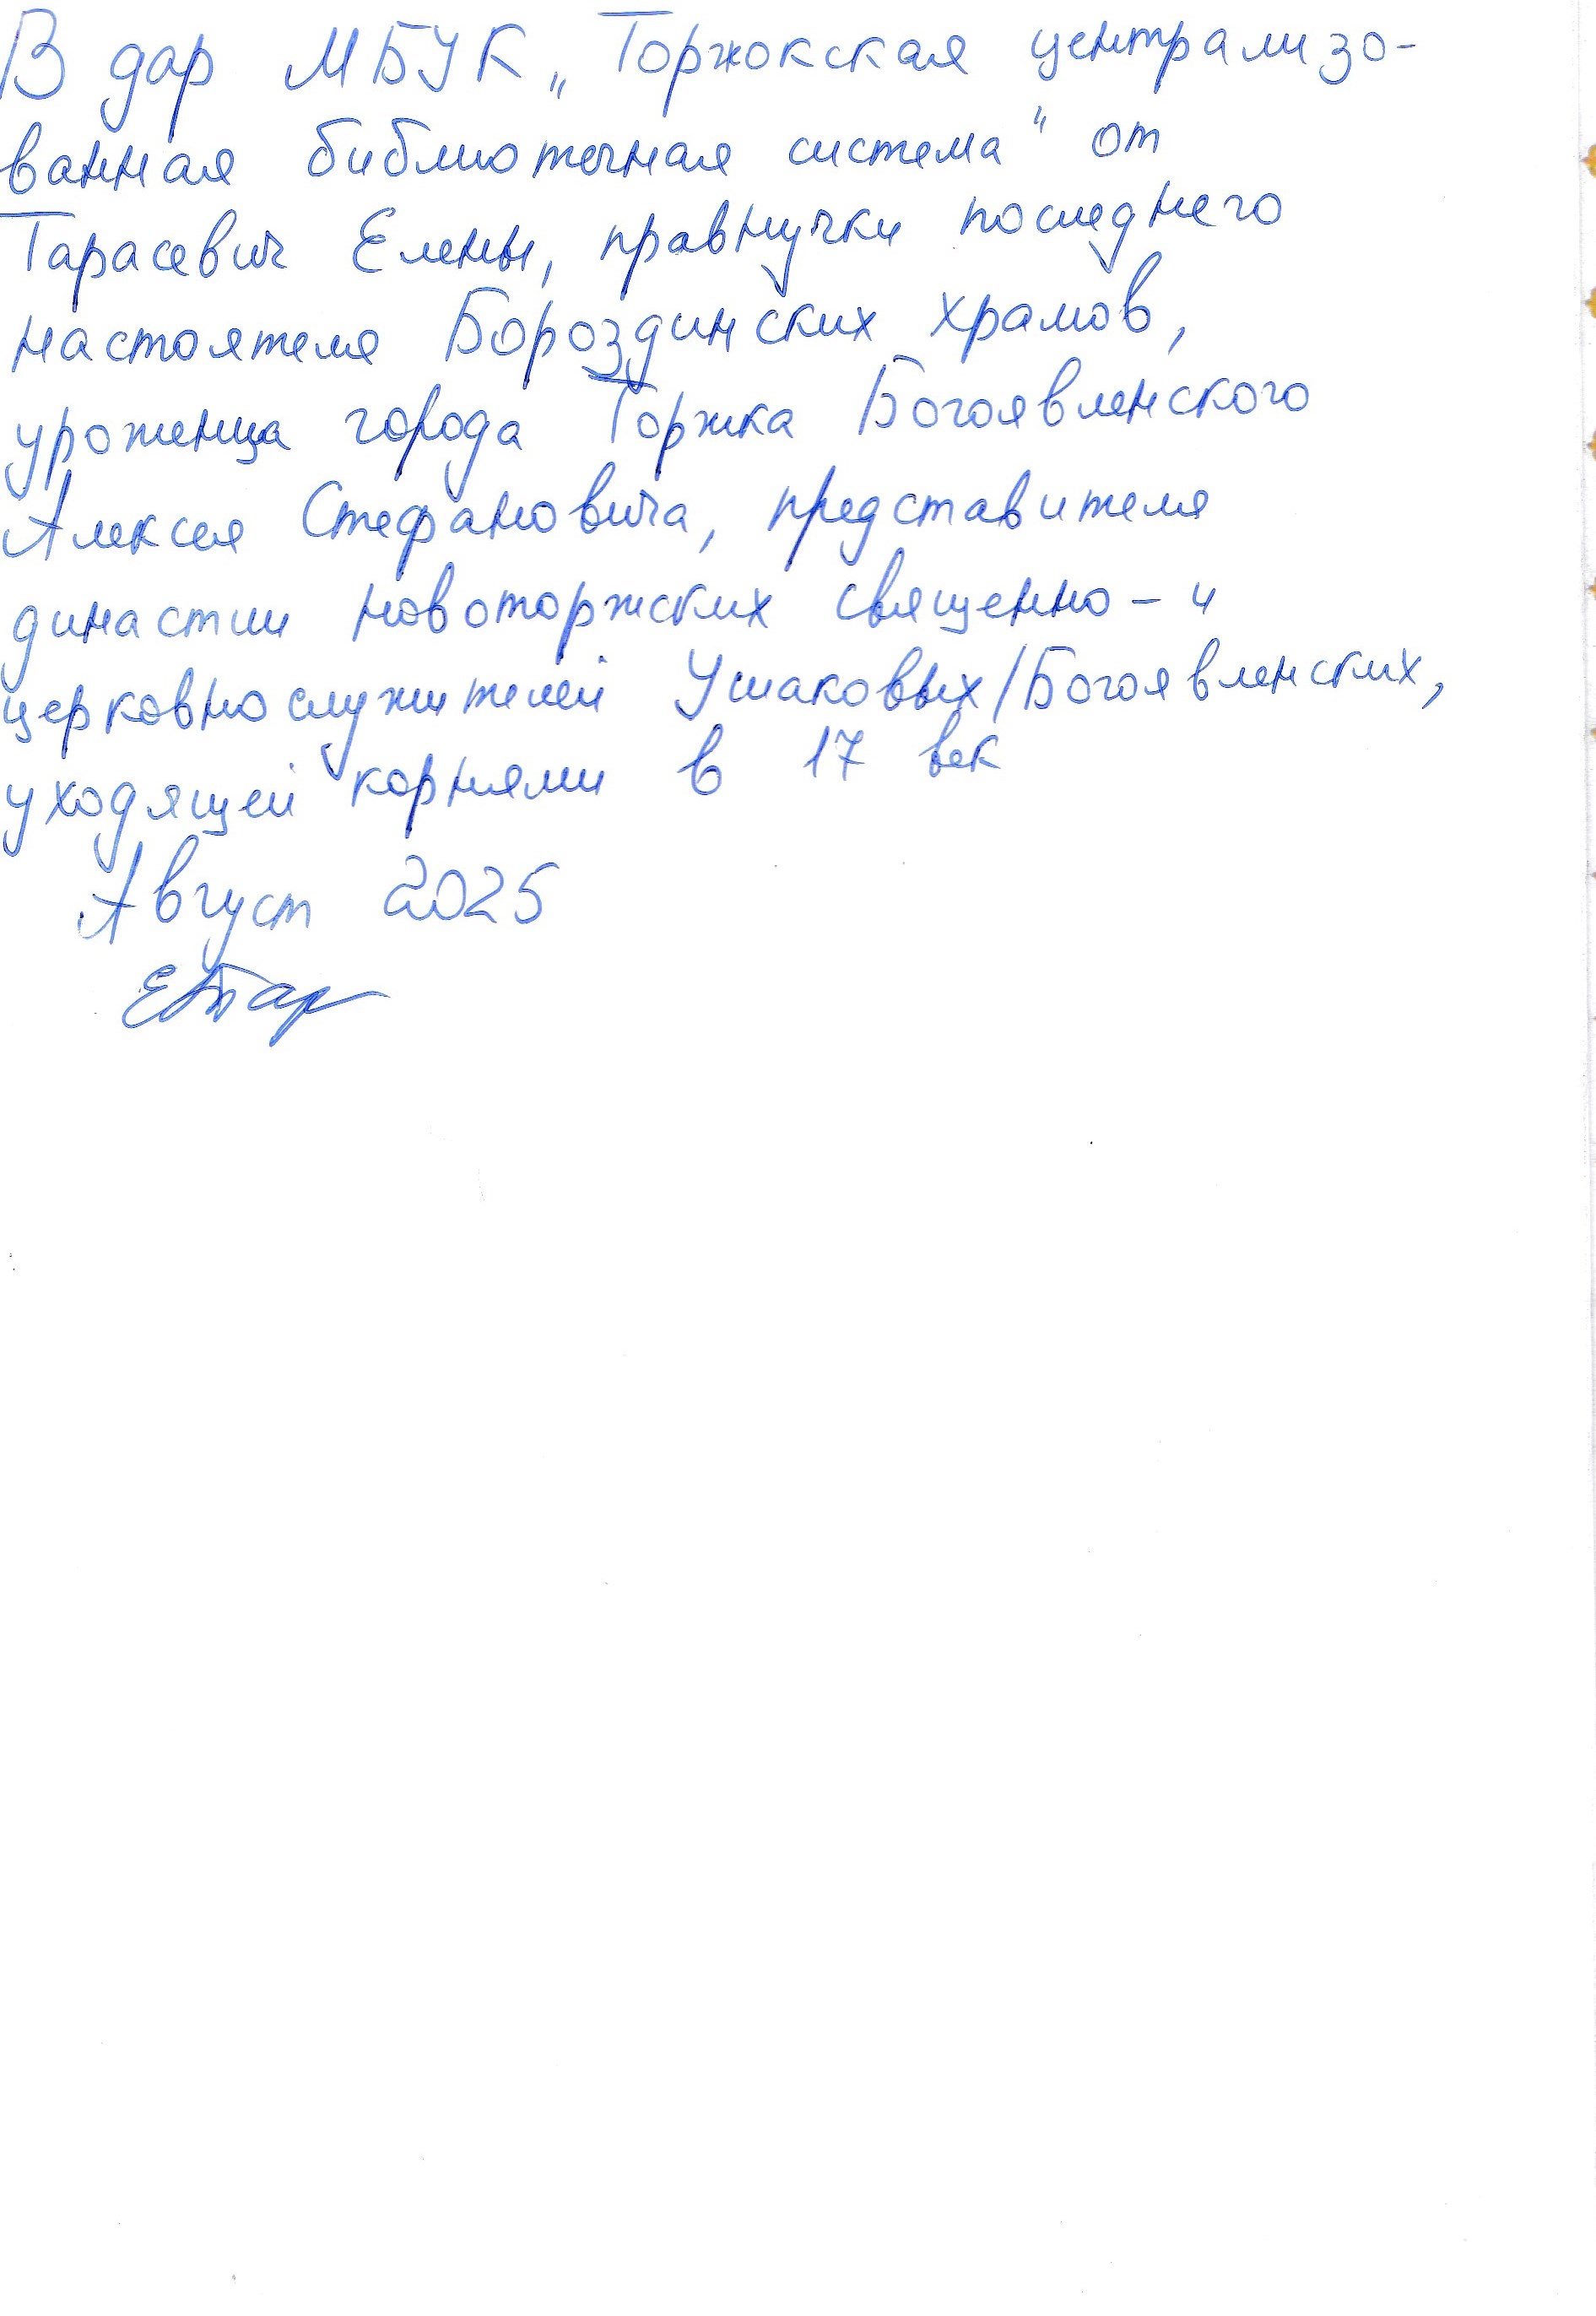 В дар МБУК „Торжокская централизо-
ванная библиотечная система“ от
Тарасевич Елены, правнучки последнего
настоятеля Бороздинских храмов,
уроженца города Торжка Богоявленского
Алексея Стефановича, представителя
династии новоторжских священно- и
церковнослужителей Ушаковых/Богоявленских,
уходящей корнями в 17 век
Август 2025
ЕТар